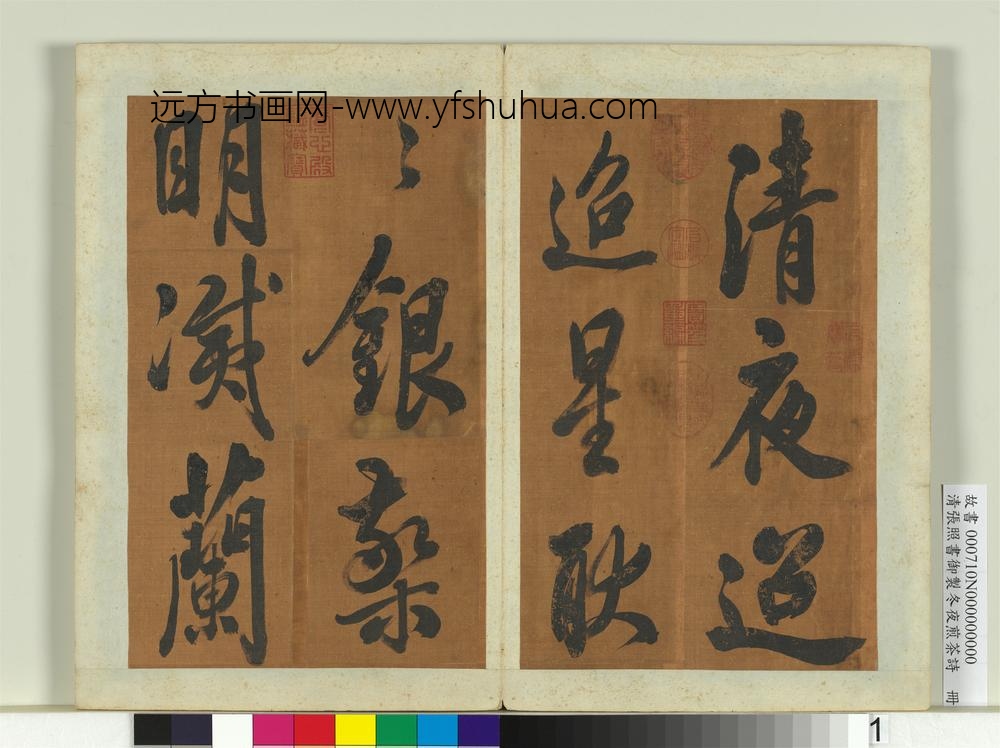 远方书画网-www.yfshuhua.com
清夜迢
迢星耿
〻銀檠
明滅蘭
故書 000710N000000000
清張照書御製冬夜煎茶詩 冊
1